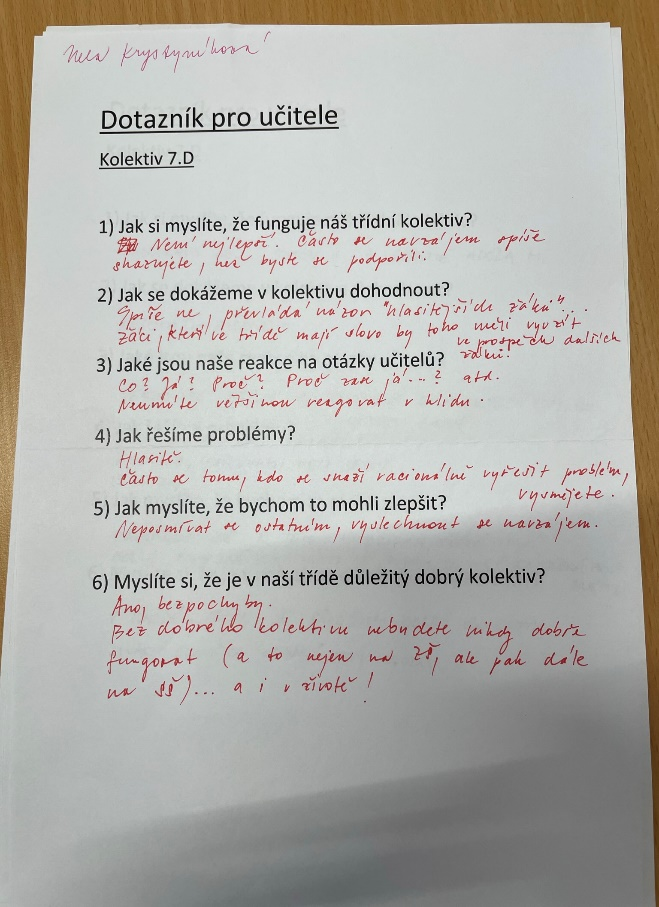 Nela Krystyníková
Dotazník pro učitele
Kolektiv 7.D
1) Jak si myslíte, že funguje náš třídní kolektiv?
Není nejlepší. Často se navzájem spíše
shazujete, než byste se podpořili.
2) Jak se dokážeme v kolektivu dohodnout?
Spíše ne, převládá názor "hlasitějších žáků"...
Žáci, kteří ve třídě mají slovo by toho měli využít
ve prospěch dalších
žáků.
3) Jaké jsou naše reakce na otázky učitelů?
Co? Já? Proč? Proč zase já...? atd.
Neumíte většinou reagovat v klidu.
4) Jak řešíme problémy?
Hlasitě.
Často se tomu, kdo se snaží racionálně vyřešit problém,
vysmějete.
5) Jak myslíte, že bychom to mohli zlepšit?
Neposmívat se ostatním, vyslechnout se navzájem.
6) Myslíte si, že je v naší třídě důležitý dobrý kolektiv?
Ano, bezpochyby.
Bez dobrého kolektivu nebudete nikdy dobře
fungovat (a to nejen na ZŠ, ale pak dále
na SŠ)... a i v životě!